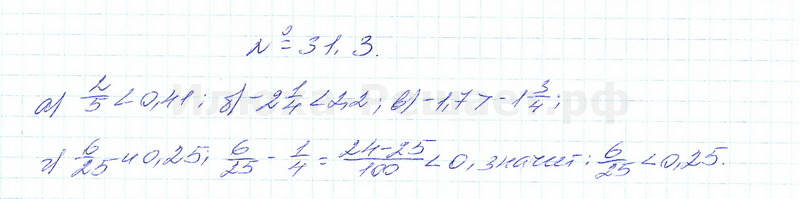 № 31.3.
а) 2/5 < 0,41; б) -2 1/4 < 2,2; в) -1,7 > -1 3/4;
г) 6/25 и 0,25; 6/25 - 1/4 = 24-25/100 < 0, значит: 6/25 < 0,25.